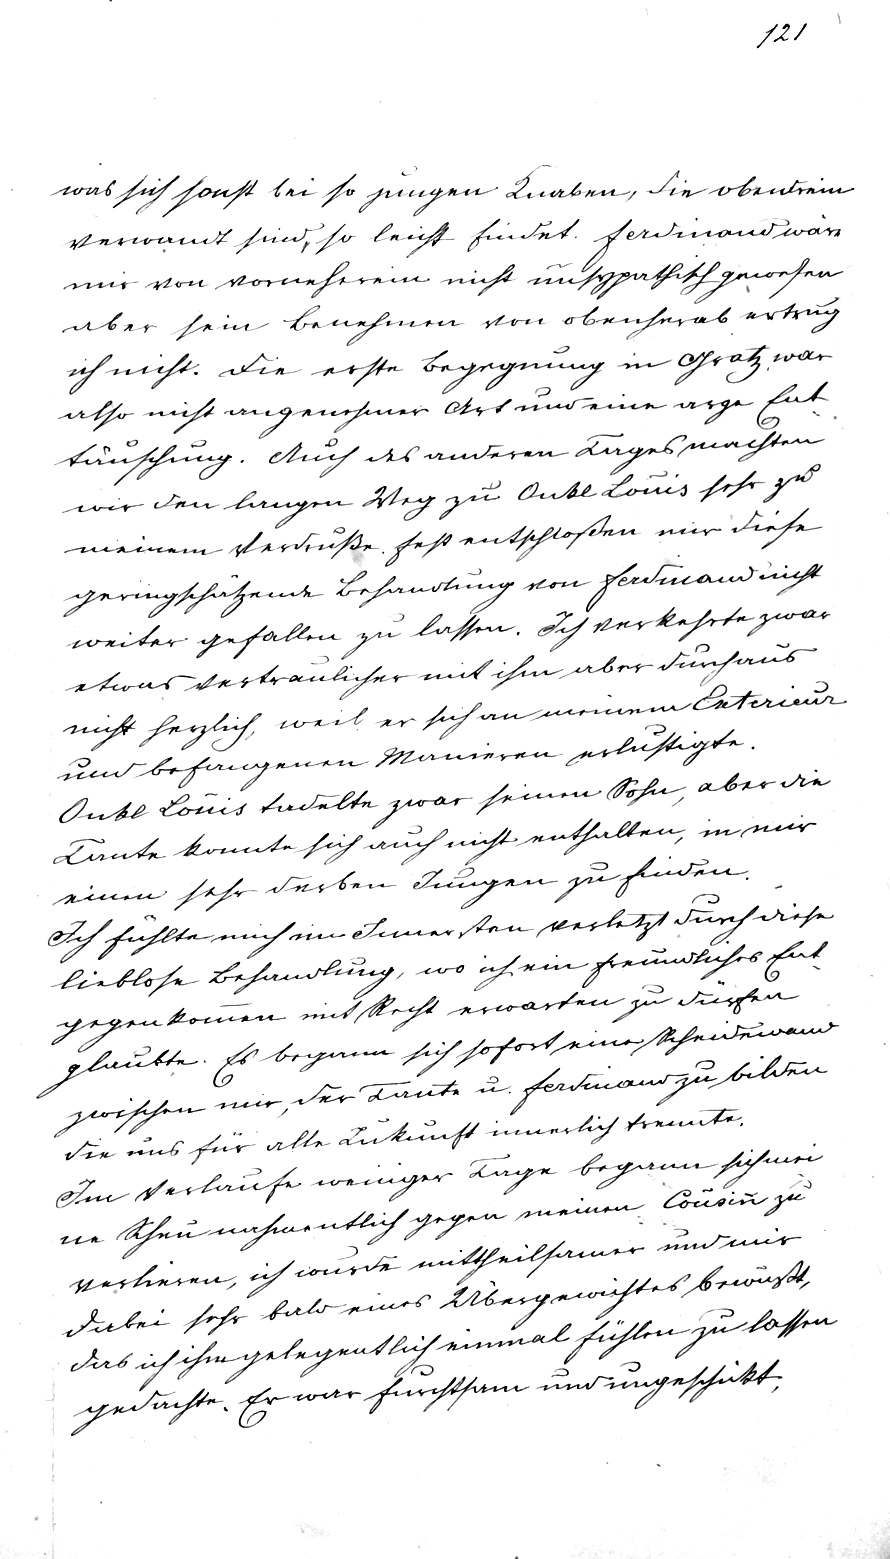 121
was sich sonst bei so jungen Knaben, die obendrein
verwandt sind, so leicht findet. Ferdinand wäre
mir von vorneherein nicht unsypathisch gewesen
aber sein Benehmen von obenherab ertrug
ich nicht. Die erste Begegnung in Gratz war
also nicht angenehmer Art und eine arge Ent-
täuschung. Auch des anderen Tages machten
wir den langen Weg zu Onkel Louis sehr zu
meinem Verdruße. Fest entschloßen mir diese
geringschätzende Behandlung von Ferdinand nicht
weiter gefallen zu lassen. Ich verkehrte zwar
etwas vertraulicher mit ihm aber durchaus
nicht herzlich, weil er sich an meinem Exterieur
und befangenen Manieren erlustigte.
Onkel Louis tadelte zwar seinen Sohn, aber die
Tante konnte sich auch nicht enthalten, in mir
einen sehr derben Jungen zu finden.
Ich fühlte mich im Innersten verletzt durch diese
lieblose Behandlung, wo ich ein freundliches Ent-
gegenkom̄en mit Recht erwarten zu dürfen
glaubte. Es begann sich sofort eine Scheidewand
zwischen mir, der Tante u. Ferdinand zu bilden
die uns für alle Zukunft innerlich trennte.
Im Verlaufe weniger Tage begann sich mei
ne Scheu nahmentlich gegen meinen Cousin̄ zu
verlieren, ich wurde mittheilsamer und mir
dabei sehr bald eines Übergewichtes bewußt,
das ich ihm gelegentlich einmal fühlen zu lassen
gedachte. Er war furchtsam und ungeschickt,